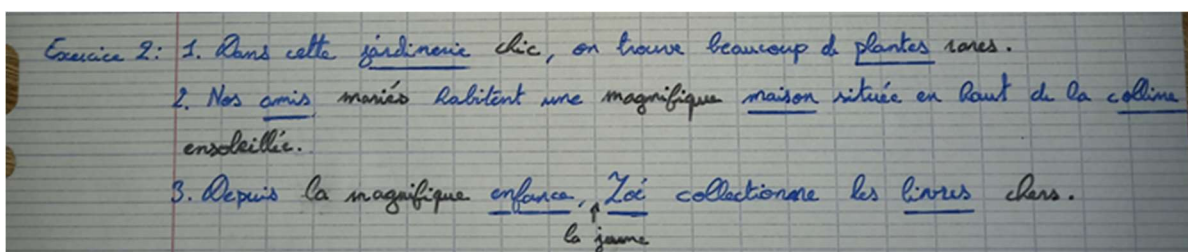 Exercice 2: 1. Dans cette jardinerie chic, on trouve beaucoup de plantes rares.
2. Nos amis mariés habitent une magnifique maison située en haut de la colline
ensoleillée.
3. Depuis la magnifique enfance, Zoé collectionne les livres chers.
la jaune